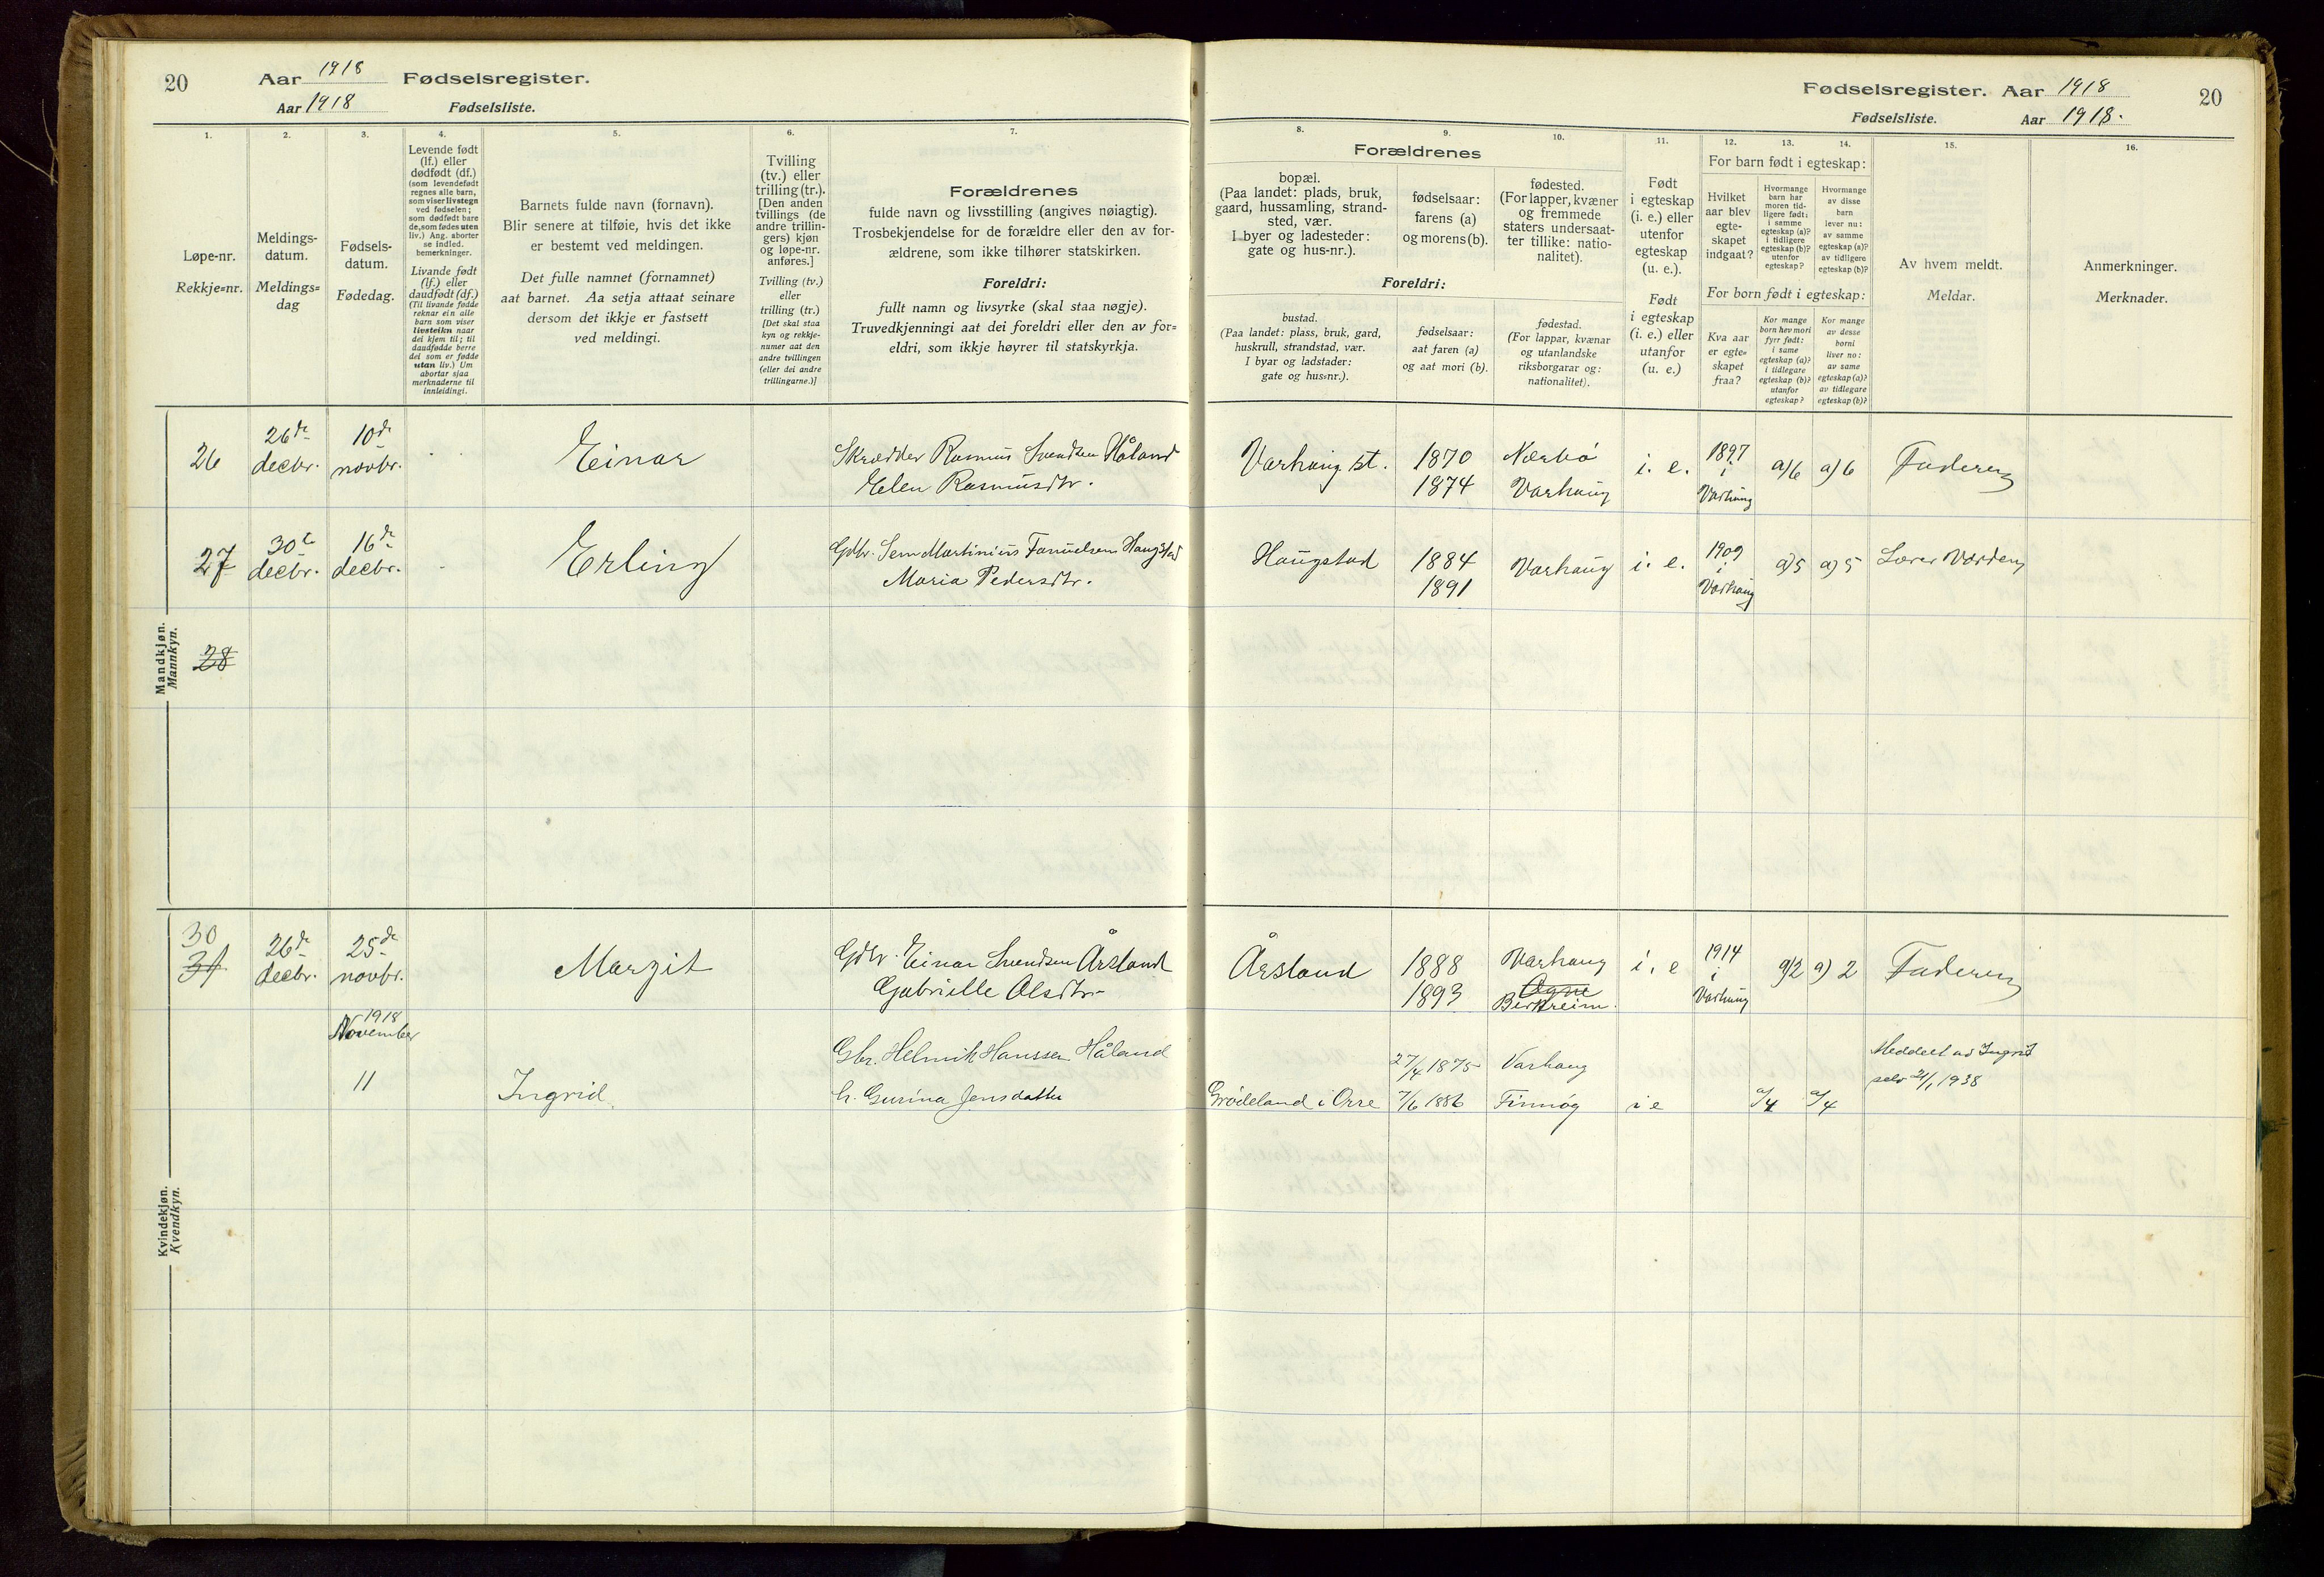 20 Aar 1918 Fødselsregister.
Aar 1918 Fødselsliste.
Fødselsregister. Aar 1918 20
Fødselsliste. Aar 1918.
1. 2. 3. 4. 5. 6. 7.
Løpe-nr.
Rekkje=nr.
Meldings-
datum.
Meldings=
dag
Fødsels-
datum.
Fødedag.
Levende født
(lf.) eller
dødfødt (df.)
(som levendefødt
regnes alle barn,
som viser livstegn
ved fødselen;
som dødfødt bare
de, som fødes uten
liv.) Ang. aborter
se indled.
bemerkninger.
Livande født
(lf.) eller
daudfødt (df.)
(Til livande fødde
reknar ein alle
barn som viser
livsteikn naar
dei kjem til; til
daudfødde berre
dei som er fødde
utan liv.) Um
abortar sjaa
merknaderne til
innleidingi.
Barnets fulde navn (fornavn).
Blir senere at tilføie, hvis det ikke
er bestemt ved meldingen.
Det fulle namnet (fornamnet)
aat barnet. Aa setja attaat seinare
dersom det ikkje er fastsett
ved meldingi.
Tvilling
(tv.) eller
trilling (tr.).
[Den anden
tvillings (de
andre trillin-
gers) kjøn
og løpe-nr.
anføres.]
Tvilling (tv.)
eller
trilling (tr.)
[Det skal staa
kyn og rekkje-
numer aat den
andre tvillingen
(eller dei andre
trillingarne.)]
Forældrenes
fulde navn og livsstilling (angives nøiagtig).
Trosbekjendelse for de forældre eller den av for-
ældrene, som ikke tilhører statskirken.
Foreldri:
fullt namn og livsyrke (skal staa nøgje).
Truvedkjenningi aat dei foreldri eller den av for=
eldri, som ikkje høyrer til statskyrkja.
8. 9. 10. 11. 12. 13. 14. 15. 16.
Forældrenes
bopæl.
(Paa landet: plads, bruk,
gaard, hussamling, strand-
sted, vær.
I byer og ladesteder:
gate og hus-nr.).
fødselsaar:
farens (a)
og morens (b).
fødested.
(For lapper, kvæner
og fremmede
staters undersaat-
ter tillike: natio-
nalitet).
Foreldri:
bustad.
(Paa landet: plass, bruk, gard,
huskrull, strandstad, vær.
I byar og ladstader:
gate og hus=nr.).
fødselsaar:
aat faren (a)
og aat mori (b).
fødestad.
(For lappar, kvænar
og utanlandske
riksborgarar og:
nationalitet).
Født
i egteskap
(i. e.) eller
utenfor
egteskap
(u. e.).
Født
i egteskap
(i. e.) eller
utanfor
(u. e.)
For barn født i egteskap:
Hvilket
aar blev
egte-
skapet
indgaat?
Hvormange
barn har
moren tid-
ligere født:
i samme
egteskap (a)?
i tidligere
egteskap (b)?
utenfor
egteskap?
Hvormange
av disse
barn
lever nu:
av samme
egteskap (a)?
av tidligere
egteskap (b)?
For born født i egteskap:
Kva aar
er egte=
skapet
fraa?
Kor mange
born hev mori
fyrr født:
i same
egteskap (a)?
i tidlegare
egteskap (b)?
utanfor
egteskap?
Kor mange
av desse
borni
liver no:
av same
egteskap (a)?
av tidlegare
egteskap (b)?
Av hvem meldt.
Meldar.
Anmerkninger.
Merknader.
Mandkjøn.
Mannkyn.
26 26de decbr. 10de novbr. Einar Skrædder Rasmus Svendsen Håland Varhaug st. 1870 Nærbö i. e. 1897 a)6 a) 6 Faderen
Elen Rasmusdtr. 1874 Varhaug i Varhaug
27 30te decbr. 16de decbr. Erling Gdbr. Sem Martinius Tønnesen Haugstad Haugstad 1884 Varhaug i. e. 1909 a)5 a) 5 Lærer Varden
Maria Pedersdtr. 1891 i Varhaug
28
Kvindekjøn.
Kvendkyn.
30
31 26de decbr. 25de novbr. Margit Gdbr. Einar Svendsen Årsland Årsland 1888 Varhaug i. e 1914 a)2 a) 2 Faderen
Gabrielle Olsdtr. 1893 Ogne i Varhaug
Berkreim.
1918
November
Gbr. Helmik Hanssen Håland 27/4 1875 Varhaug Meddelt av Ingrid
11 Ingrid h. Gurina Jensdatter Grödeland i Orre 7/6 1886 Finnöy i e a/4 a/4 selv 21/1 1938